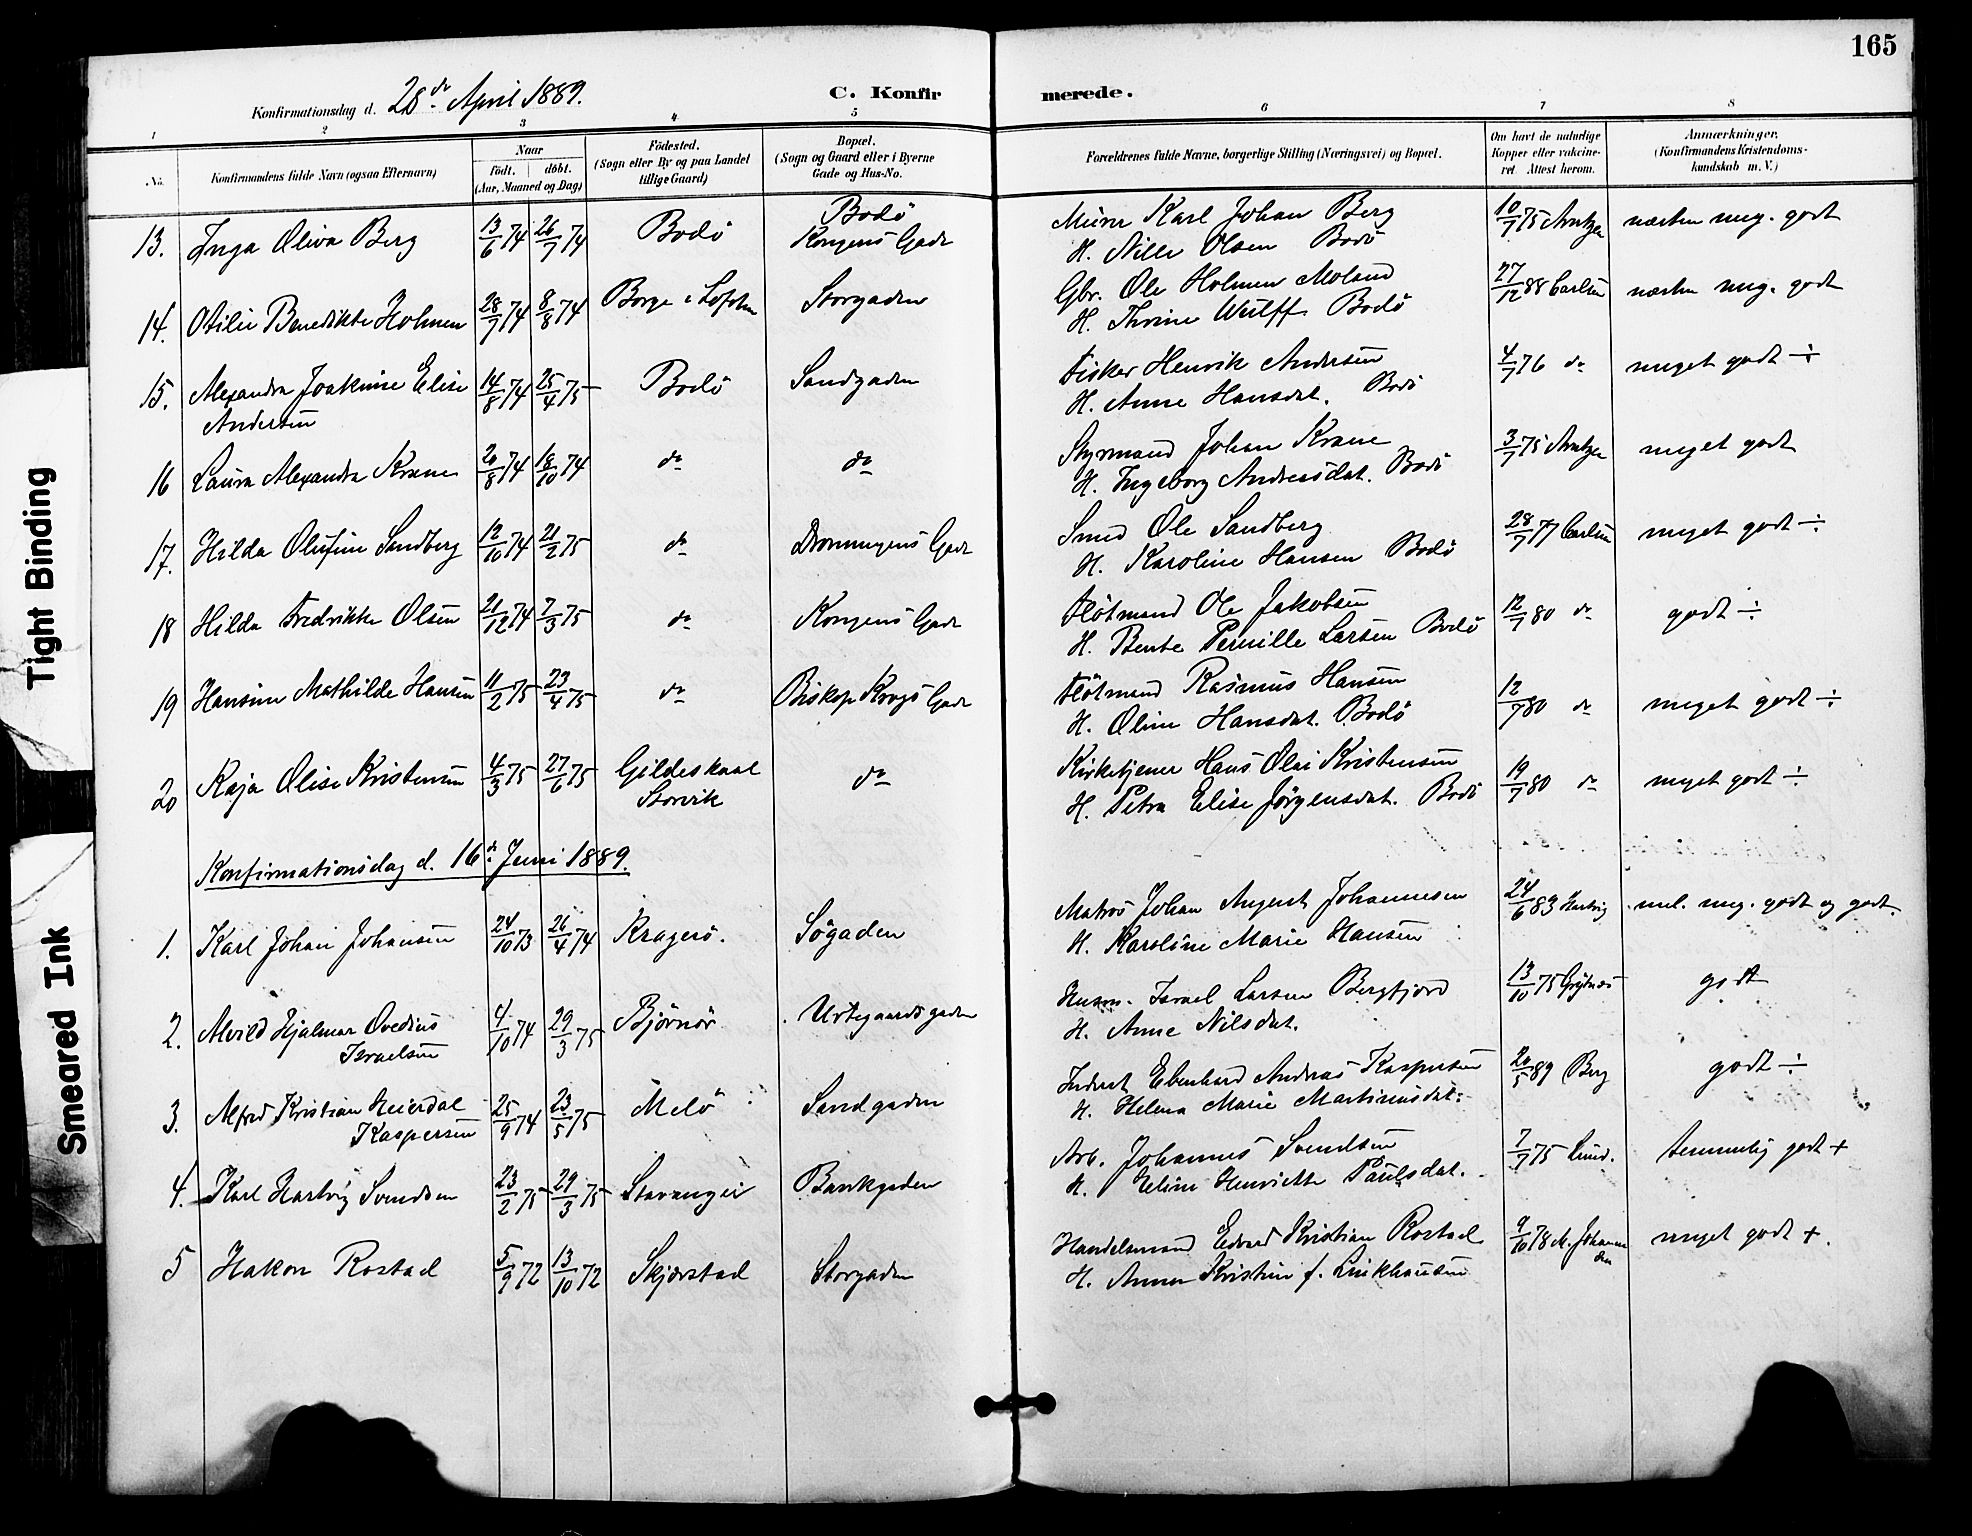 165
Konfirmationsdag d. 28de April 1889.
C. Konfirmerede.
1 2 3 4 5 6 7 8
No.
Konfirmandens fulde Navn (ogsaa Efternavn)
Naar
födt. döbt.
(Aar, Maaned og Dag)
Födested.
(Sogn eller By og paa Landet
tillige Gaard)
Bopæl.
(Sogn og Gaard eller i Byerne
Gade og Hus-No.
Forældrenes fulde Navne, borgerlige Stilling (Næringsvei) og Bopæl.
Om havt de naturlige
Kopper eller vakcine-
ret Attest herom.
Anmærkninger.
(Konfirmandens Kristendoms-
kundskab m. V.)
13. Inga Oliva Berg 13/6 74 26/7 74 Bodö Bodö Kongens Gade Murer Karl Johan Berg 10/7 75 Arntzen næsten meg. godt
H. Nille Olsen Bodö
14. Otilie Benedikte Holmen 28/7 74 8/8 74 Borge i Lofoten Storgaden Gbr. Ole Holmen Moland 27/12 88 Carlsen næsten meg. godt
H. Thrine Wulff Bodö
15. Alexandra Joakime Elise 14/8 74 25/4 75 Bodö Sandgaden Fisker Henrik Andersen 4/7 76 do meget godt ÷
Andersen H. Anne Hansdat. Bodö
16 Laura Alexandra Krane 20/8 74 18/10 74 do do Styrmand Johan Krane 3/7 75 Arntzen meget godt
H. Ingeborg Andreasdat. Bodö
17. Hilda Olufine Sandberg 12/10 74 21/2 75 do Dronningens Gade Smed Ole Sandberg 28/7 77 Carlsen meget godt ÷
H. Karoline Hansen Bodö
18 Hilda Fredrikke Olsen 21/12 74 7/3 75 do Kongens Gade Flötmand Ole Jakobsen 12/7 80 do godt ÷
H. Bente Pernille Larsen Bodö
19 Hansine Mathilde Hansen 11/2 75 23/4 75 do Biskop Krogs Gade Flötmand Rasmus Hansen 12/7 80 do meget godt ÷
H. Oline Hansdat. Bodö
20 Kaja Olise Kristensen 4/3 75 27/6 75 Gildeskaal Storvik do Kirketjener Hans Olai Kristensen 19/7 80 do meget godt ÷
H. Petra Elise Jörgensdat. Bodö
Konfirmationsdag d. 16de Juni 1889.
1. Karl Johan Johansen 24/10 73 26/4 74 Kragerö. Sögaden Matros Johan August Johannesen 24/6 83 Hartvig mel. meg. godt og godt.
H. Karoline Marie Hansen
2. Alvild Hjalmar Ovedius 4/10 74 29/3 75 Björnör Urtegaardsgaden Husm. Israel Larsen Bergfjord 13/10 75 godt
Israelsen H. Anne Nilsdat.
3. Alfred Kristian Heierdal 25/9 74 23/5 75 Melö Sandgaden Inderst Ebenhard Andreas Kaspersen 20/5 89 Berg godt ÷
Kaspersen H. Helena Marie Martinusdat.
4. Karl Hartvig Svendsen 23/2 75 29/3 75 Stavanger Bankgaden Arb. Johannes Svendsen 7/7 75 Lund. temmelig godt +
H. Eline Henriette Paulsdat.
5 Hakon Rostad 5/9 72 13/10 72 Skjerstad Storgaden Handelsmand Edvard Kristian Rostad 9/10 78 M. Johannesen meget godt +.
H. Anna Kristine f. Linkhausen
Tight Binding
Smeared Ink